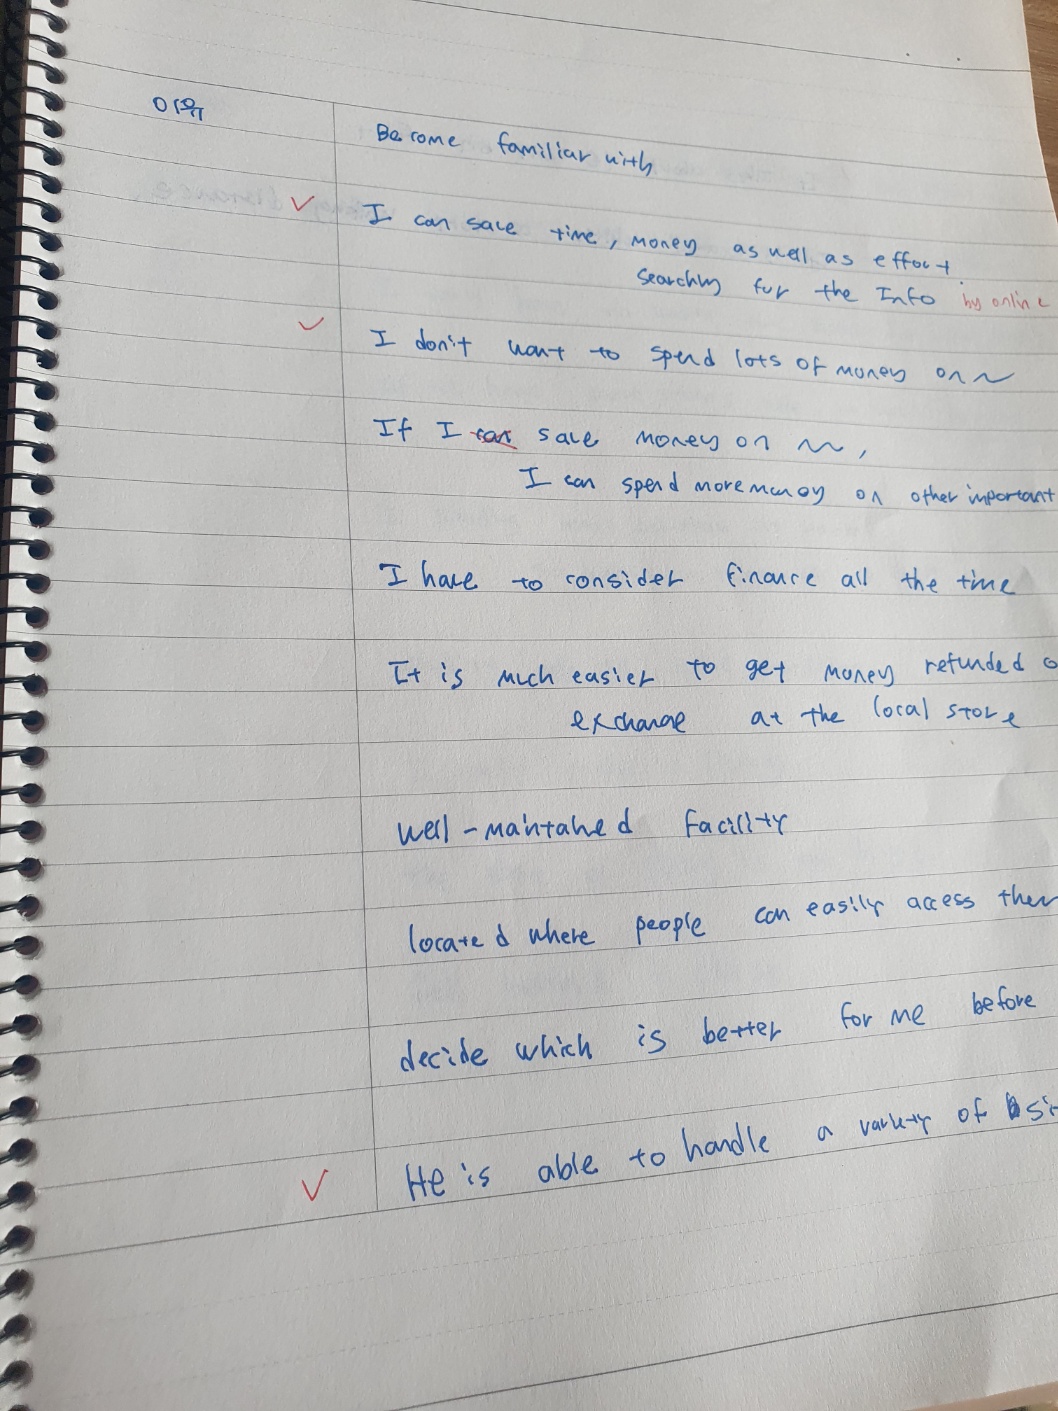 이유
Become familiar with
I can save time, money as well as effort
searching for the Info by online
I don't want to spend lots of money on ~
If I can save money on ~,
I can spend more money on other important
I have to consider finance all the time
It is much easier to get money refunded o
exchange at the local store
well-maintained facility
located where people can easily access them
decide which is better for me before
He is able to handle a variety of